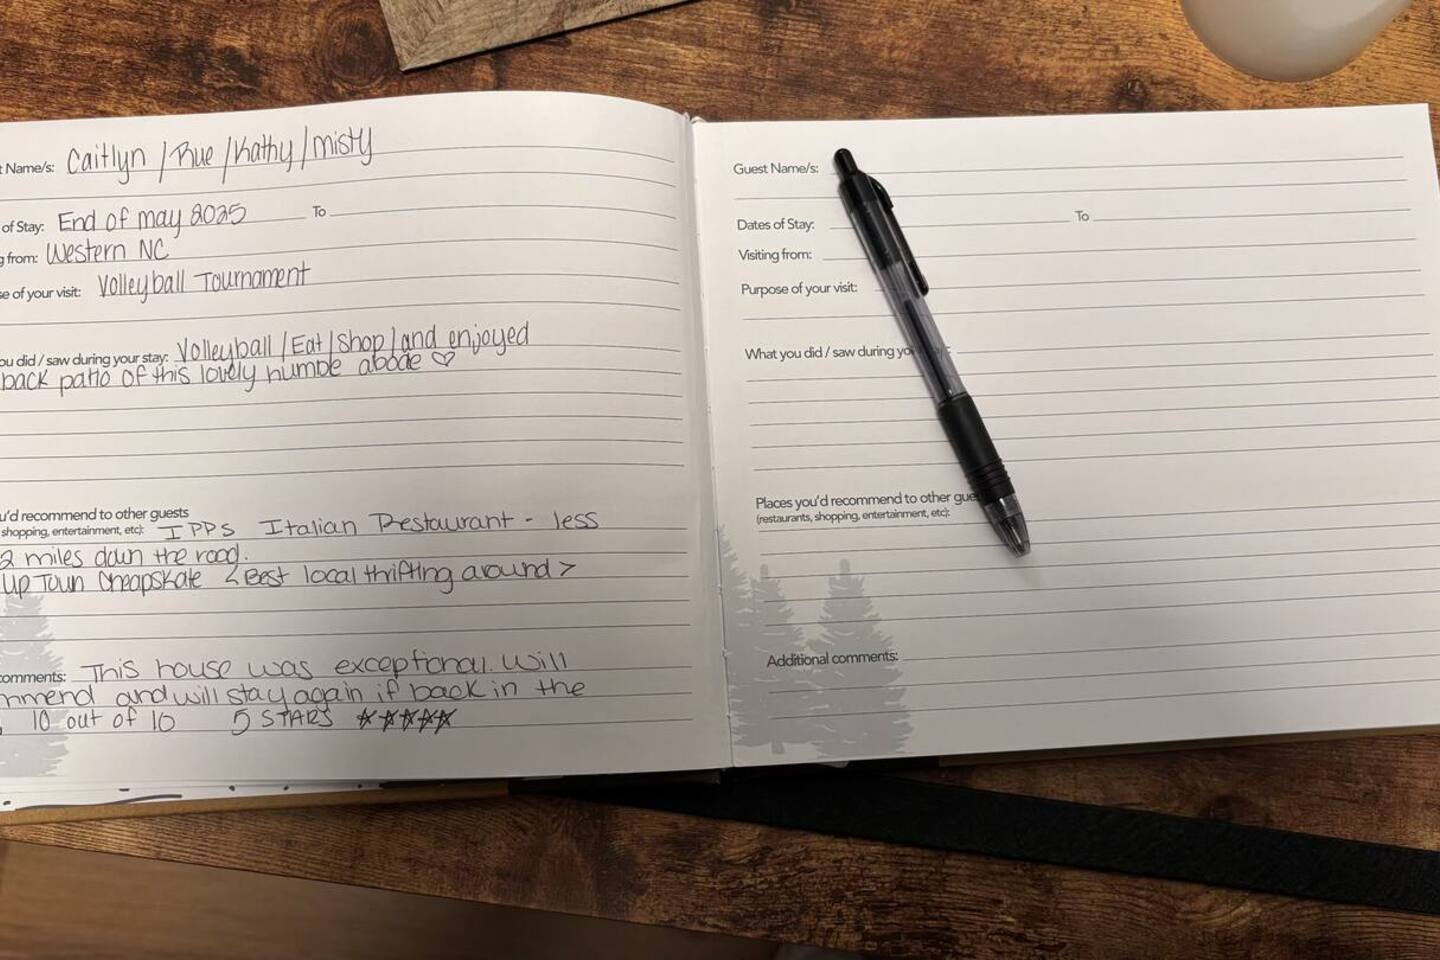 t Name/s: Caitlyn / Rue / Kathy / misty
of Stay: End of may 2025 To
g from: Western NC
se of your visit: Volleyball Tournament
ou did / saw during your stay: Volleyball / Eat / shop / and enjoyed
back patio of this lovely humble abode ♡
u'd recommend to other guests
shopping, entertainment, etc): IPPs Italian Restaurant - less
2 miles down the road.
Up Town Cheapskate <Best local thrifting around>
comments: This house was exceptional. Will
mmend and will stay again if back in the
10 out of 10 5 STARS ☆☆☆☆☆
Guest Name/s:
Dates of Stay: To
Visiting from:
Purpose of your visit:
What you did / saw during yo
Places you'd recommend to other gue
(restaurants, shopping, entertainment, etc):
Additional comments: